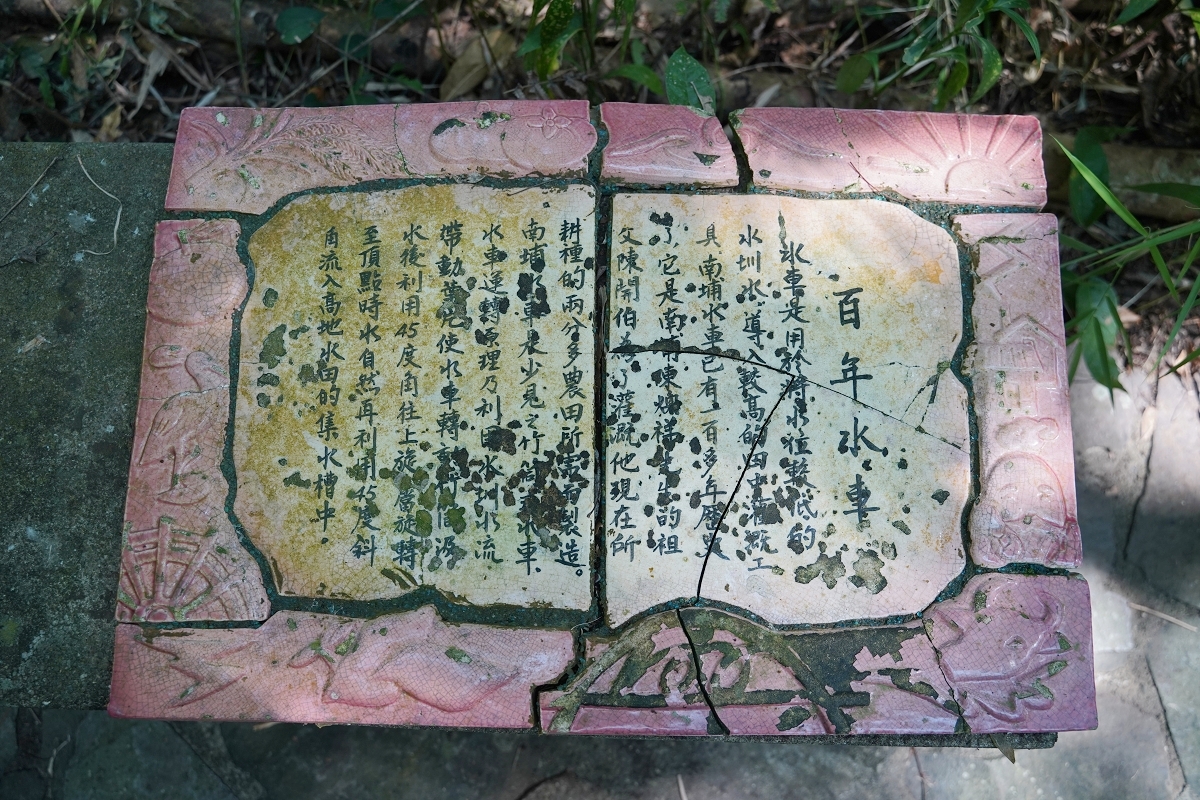 百年水車
水車是用於將水位較低的
水圳水,導入較高的田中灌溉工
具,南埔水車已有一百多年歷史
了,它是南埔陳祥先生的祖
父陳開伯為了灌溉他現在所
耕種的兩分多農田所需而製造。
南埔水車少見之竹筒水車,
水車運轉原理乃利用水圳水流
帶動葉片使水車轉竹筒汲
水後利用45度角往上旋,當旋轉
至頂點時水自然再利用45度斜
角流入高地水田的集水槽中。